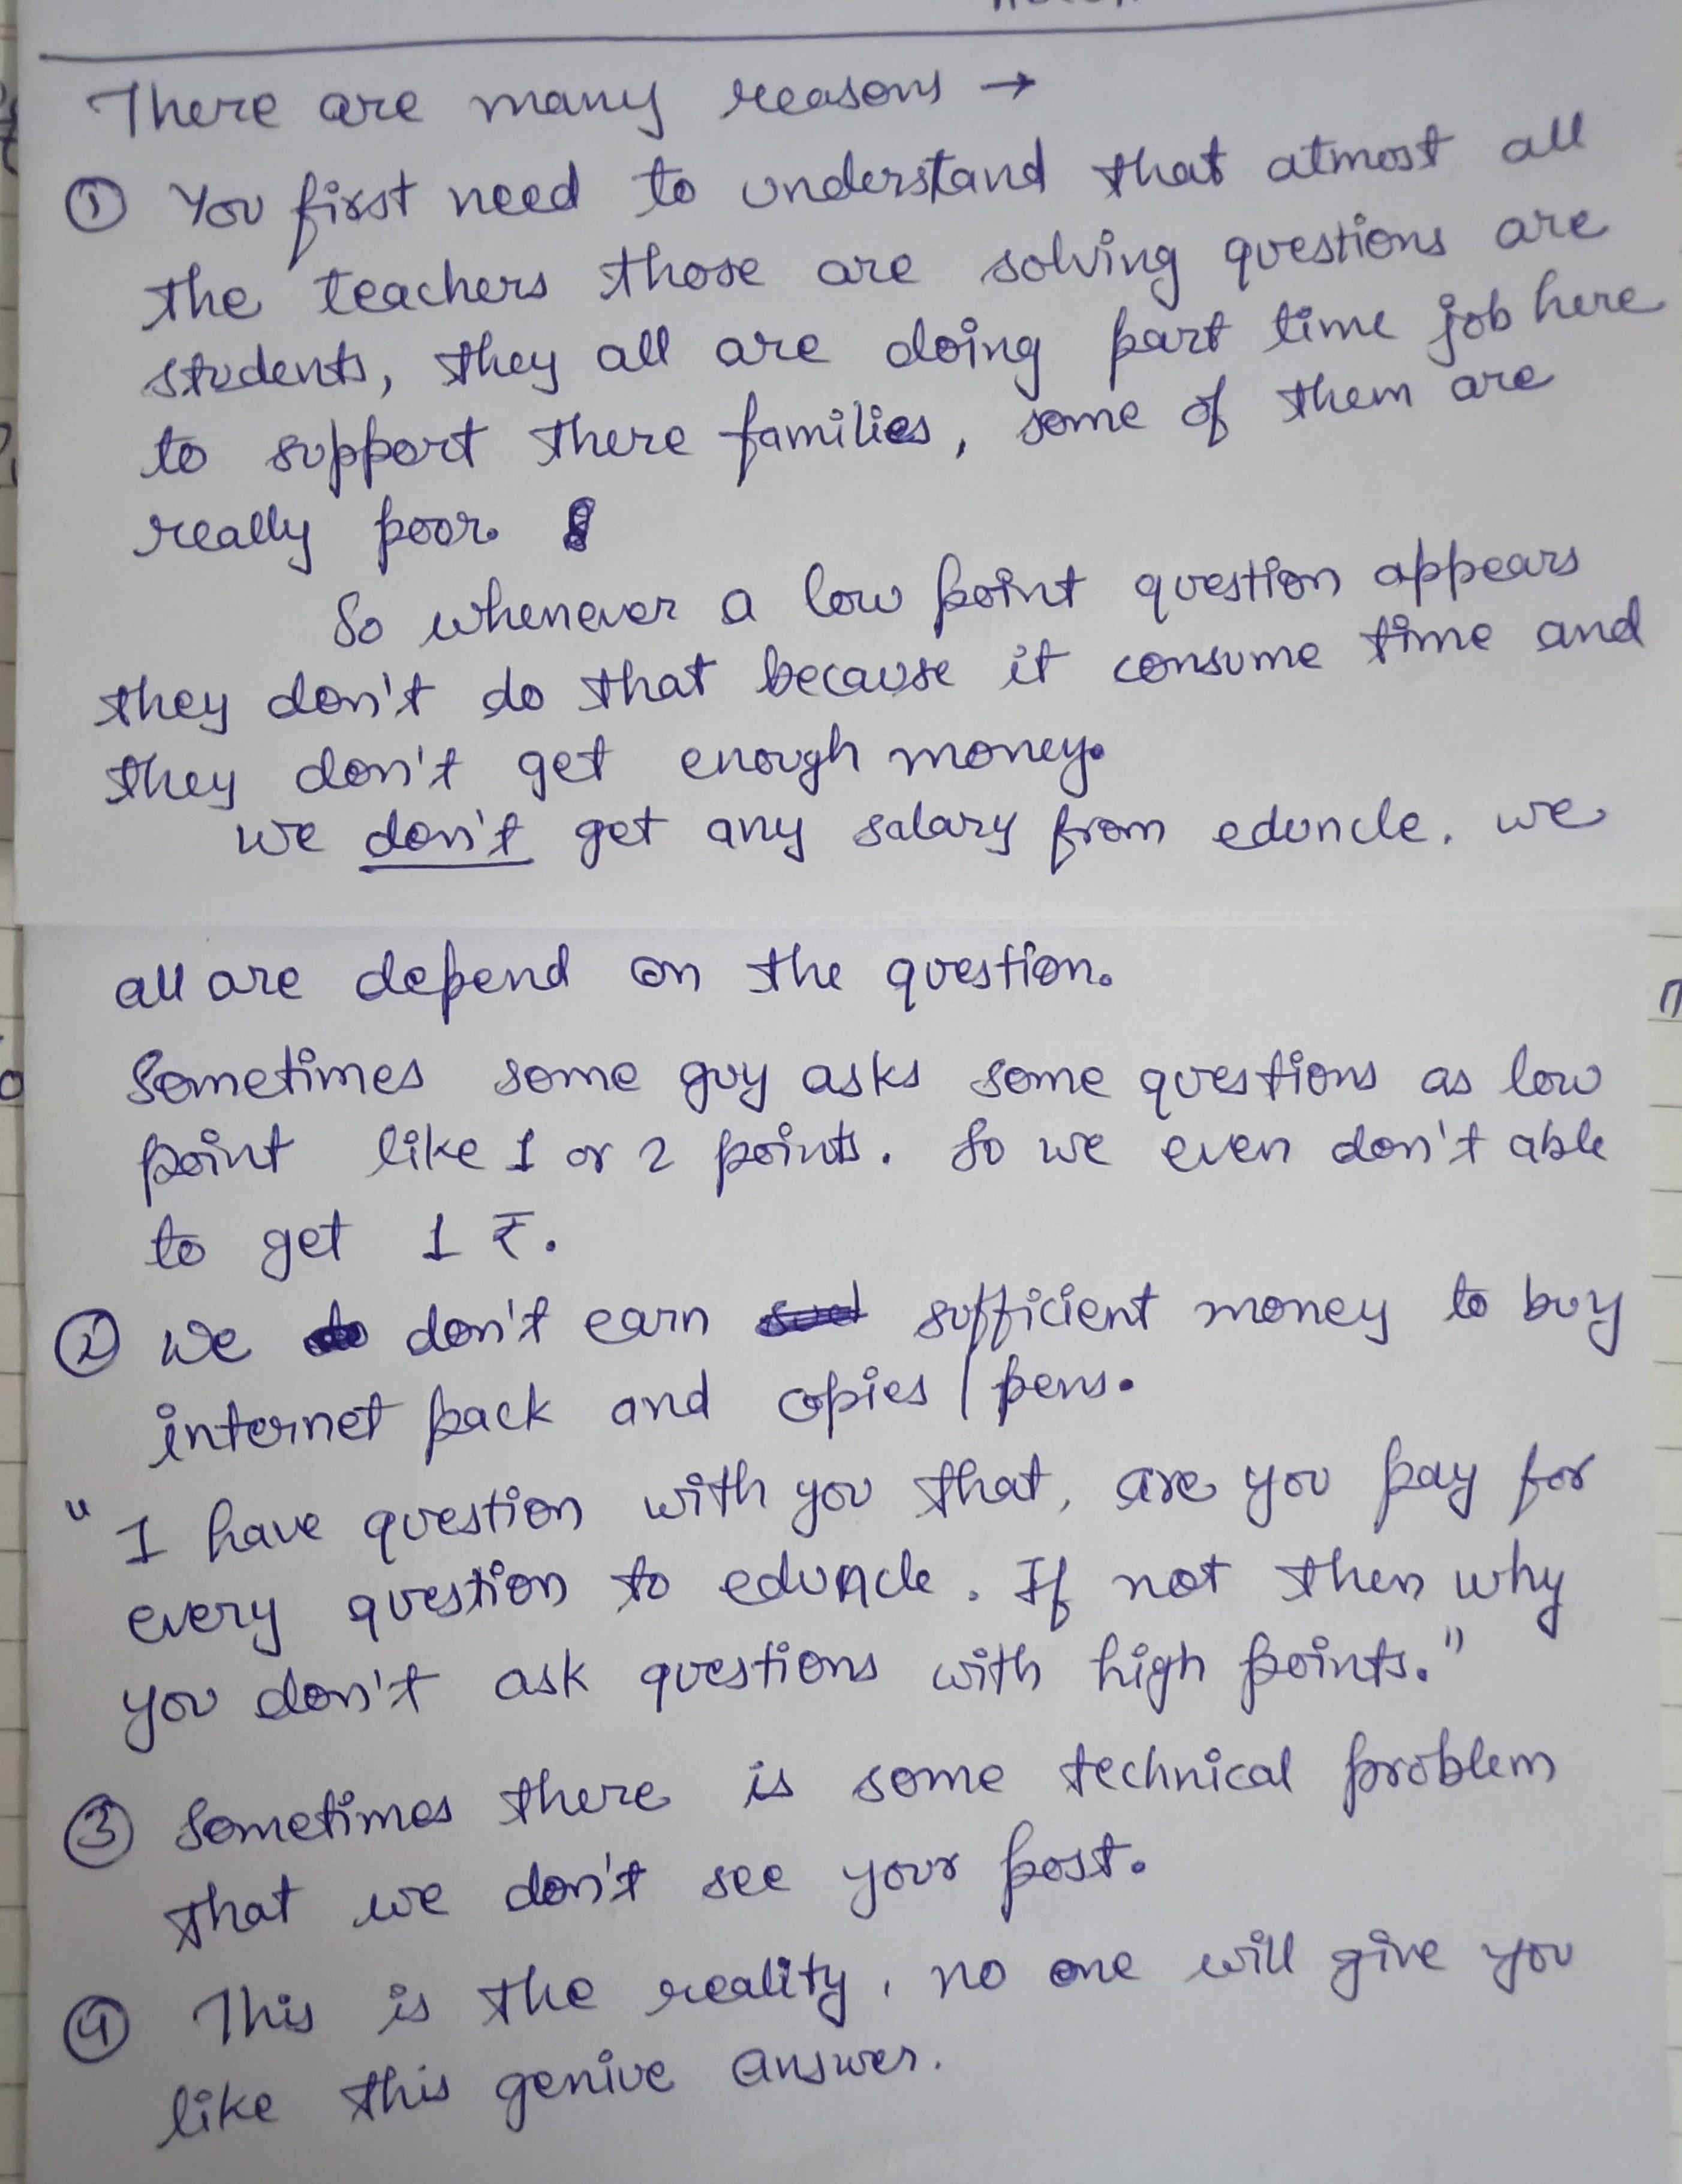 There are many reasons →
① You first need to understand that atmost all
the teachers those are solving questions are
students, they all are doing part time job here
to support there families, some of them are
really poor.
So whenever a low point question appears
they don't do that because it consume time and
they don't get enough money.
we don't get any salary from eduncle. we
all are depend on the question.
Sometimes some guy asks some questions as low
point like 1 or 2 points. So we even don't able
to get 1 ₹.
② we don't earn sufficient money to buy
internet pack and copies / pens.
" I have question with you that, are you pay for
every question to eduncle. If not then why
you don't ask questions with high points."
③ Sometimes there is some technical problem
that we don't see your post.
④ This is the reality, no one will give you
like this geniue answer.